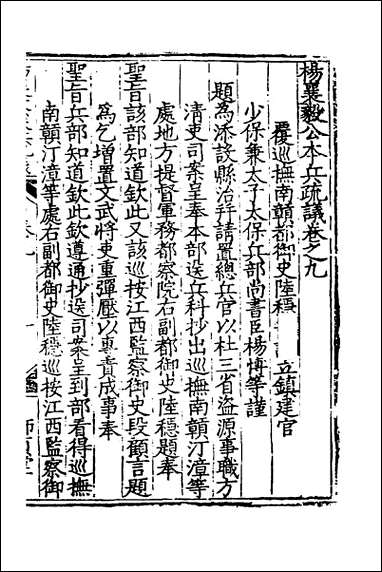 楊襄毅公本兵疏議卷之九
覆巡撫南贛都御史陸穩 立鎮建官
少保兼太子太保兵部尚書臣楊博等謹
題為添設縣治幷請置總兵官以杜三省盜源事職方
清吏司案呈奉本部送兵科抄出巡撫南贛汀漳等
處地方提督軍務都察院右副都御史陸穩題奉
聖旨該部知道欽此又該巡按江西監察御史段顧言題
為乞增置文武將吏重彈壓以專責成事奉
聖旨兵部知道欽此欽遵通抄送司案呈到部看得巡撫
南贛汀漳等處右副都御史陸穩巡按江西監察御